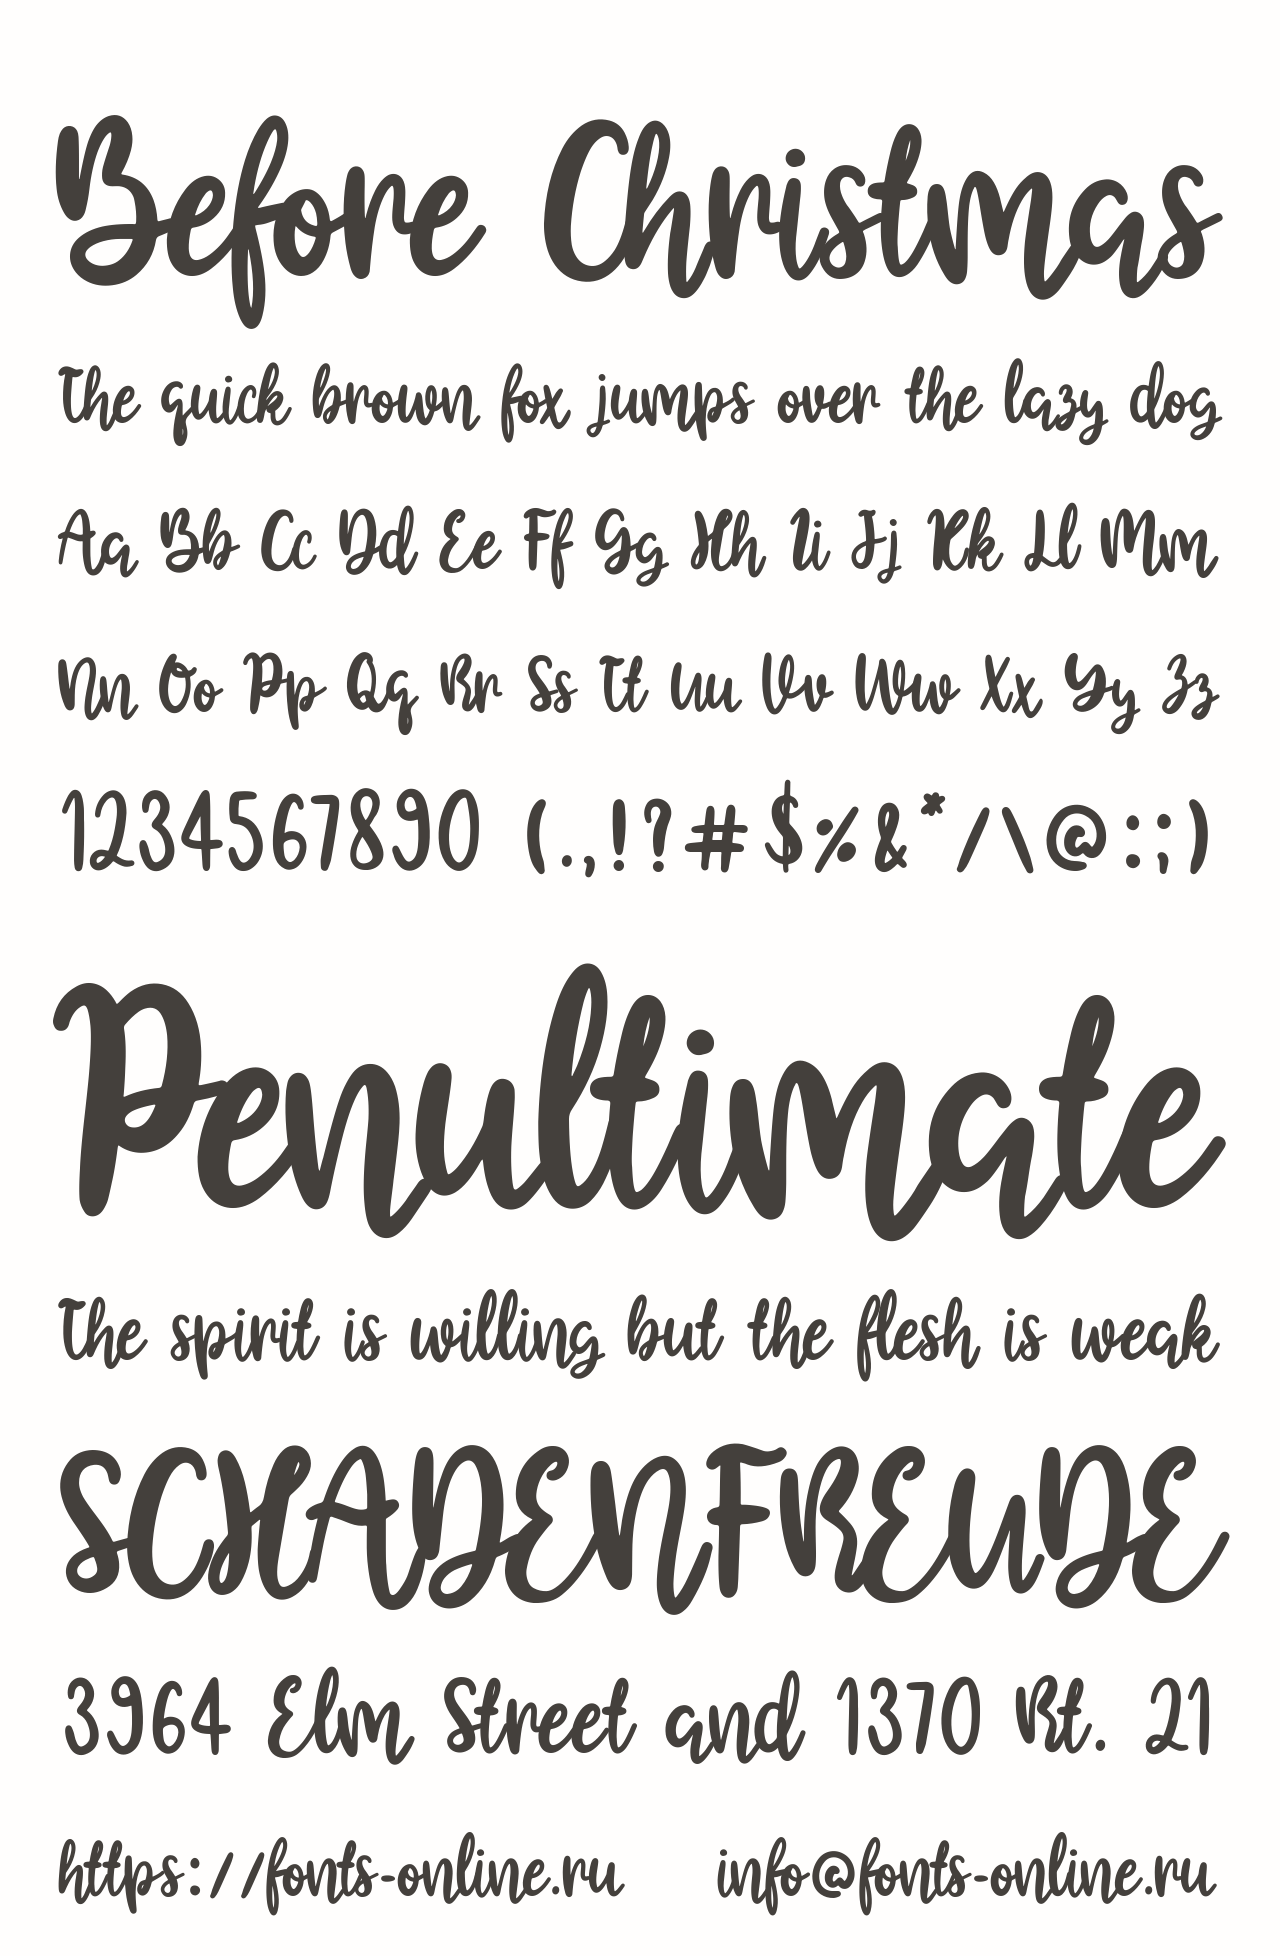 Before Christmas
The quick brown fox jumps over the lazy dog
Aa Bb Cc Dd Ee Ff Gg Hh Ii Jj Kk Ll Mm
Nn Oo Pp Qq Rr Ss Tt Uu Vv Ww Xx Yy Zz
1234567890 (.,!?#$%&*/\@:;)
Penultimate
The spirit is willing but the flesh is weak
SCHADENFREUDE
3964 Elm Street and 1370 Rt. 21
https://fonts-online.ru info@fonts-online.ru